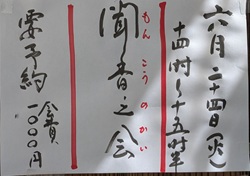 六月二十四日(火)
十四時〜十五時半
聞香之会
もんこうのかい
要予約
会費
一〇〇〇円